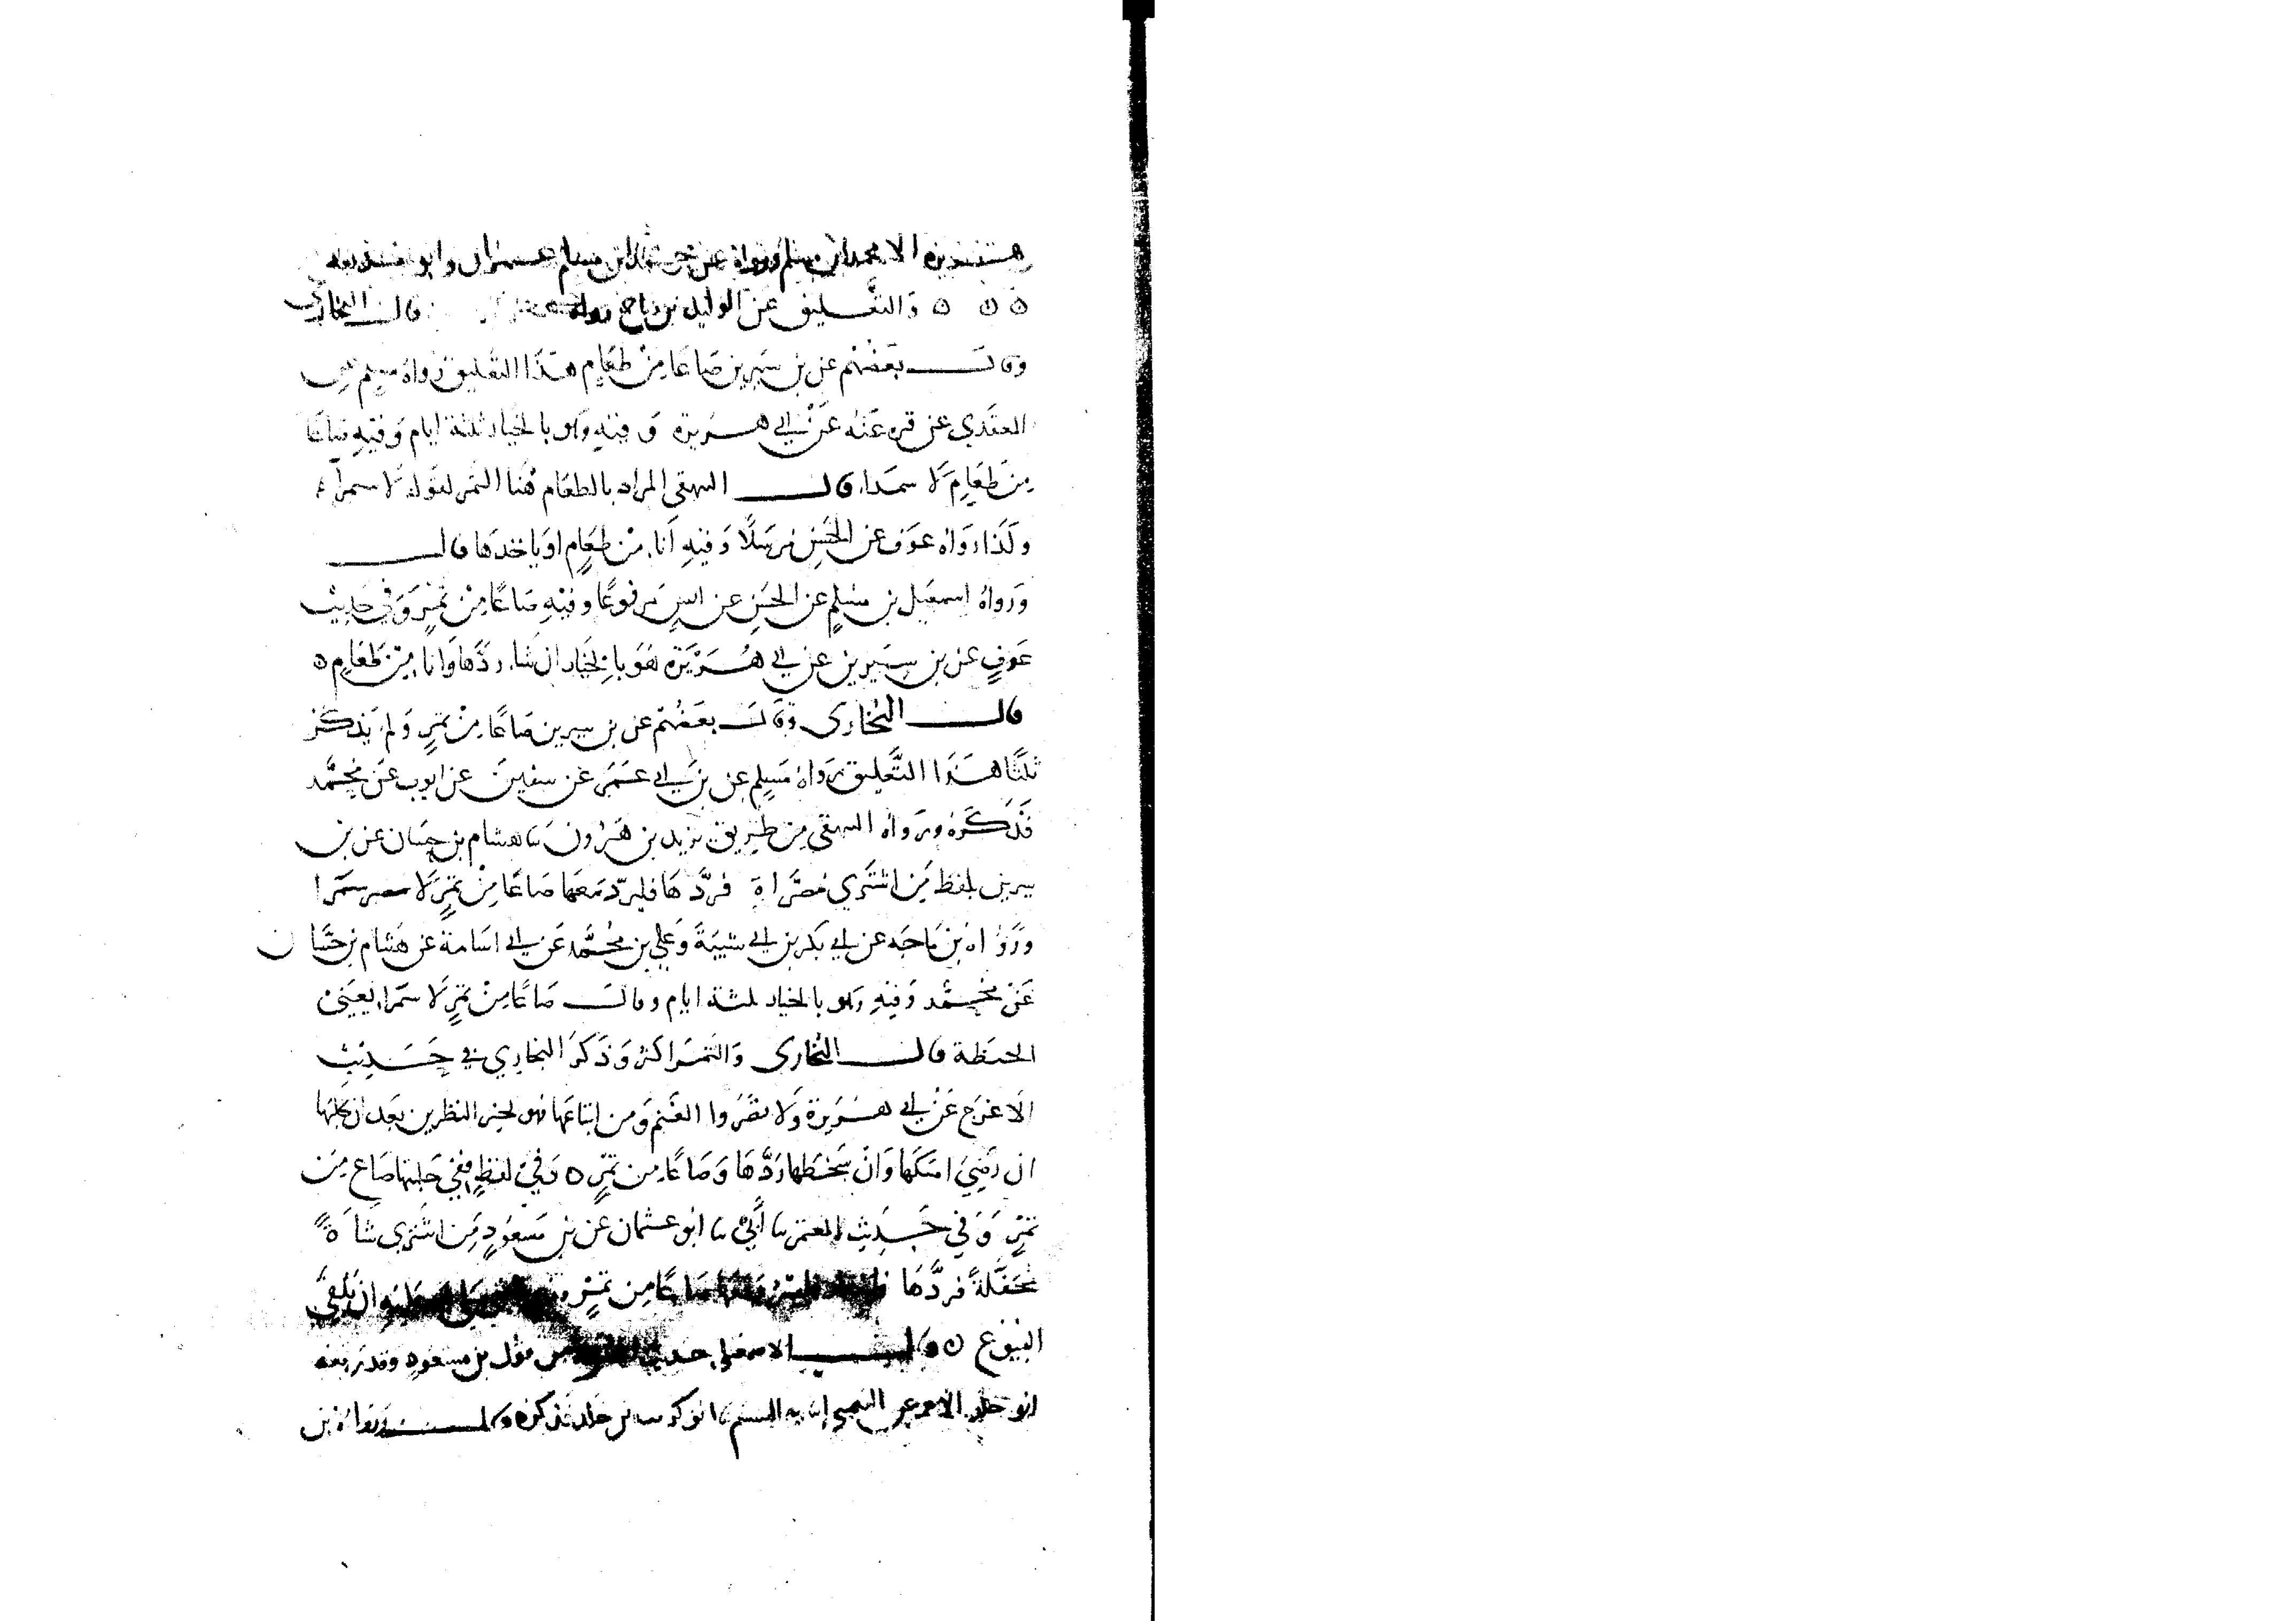 هريرة الا محمد بن مسلم
والتعليق عن الوليد بن رباح رواه قال البخاري
وقال بعضهم عن بن سيرين صاعا من طعام هذا التعليق رواه مسلم عن
العقدي عن قره عنه عن ابي هريرة وفيه وهو بالخيار ثلثة ايام وفيه صاعا
من طعام لا سمراء قال البيهقي المراد بالطعام هنا التمر لقوله لا سمراء
وكذا رواه عوف عن الحسن مرسلا وفيه اناء من طعام او ياخذها قال
ورواه اسمعيل بن مسلم عن الحسن عن انس مرفوعا وفيه صاعا من تمر وفي حديث
عوف عن بن سيرين عن ابي هريرة هو بالخيار ان شاء ردها واناء من طعام ه
قال البخارى وقال بعضهم عن بن سيرين صاعا من تمر ولم يذكر
ثلثا هذا التعليق رواه مسلم عن بن ابي عمر عن سفين عن ايوب عن محمد
فذكره ورواه البيهقي من طريق يزيد بن هرون ثنا هشام بن حسان عن بن
سيرين بلفظ من اشتري مصراة فردها فليرد معها صاعا من تمر لا سمرا
ورواه بن ماجه عن ابي بكر بن ابي شيبة وعلي بن محمد عن ابي اسامة عن هشام بن حسان
عن محمد وفيه وهو بالخيار ثلثة ايام وقال صاعا من تمر لا سمراء يعني
الحنطة قال البخارى والتمر اكثر وذكر البخاري في حديث
الاعرج عن ابي هريرة ولا تصروا الغنم ومن ابتاعها فهو بخير النظرين بعد ان يحلبها
ان رضي امسكها وان سخطها ردها وصاعا من تمر ه وفي لفظ ففي حلبتها صاع من
تمر وفي حديث المعتمر ثنا أبي ثنا ابو عثمان عن بن مسعود من اشترى شاة
محفلة فردها صاعا من تمر ان تلقى
البيوع ه وقال الاسمعيلي حديث من قول بن مسعود وقد رفعه
ابو خالد الاحمر عن التيمي فذكره قال ورواه بن